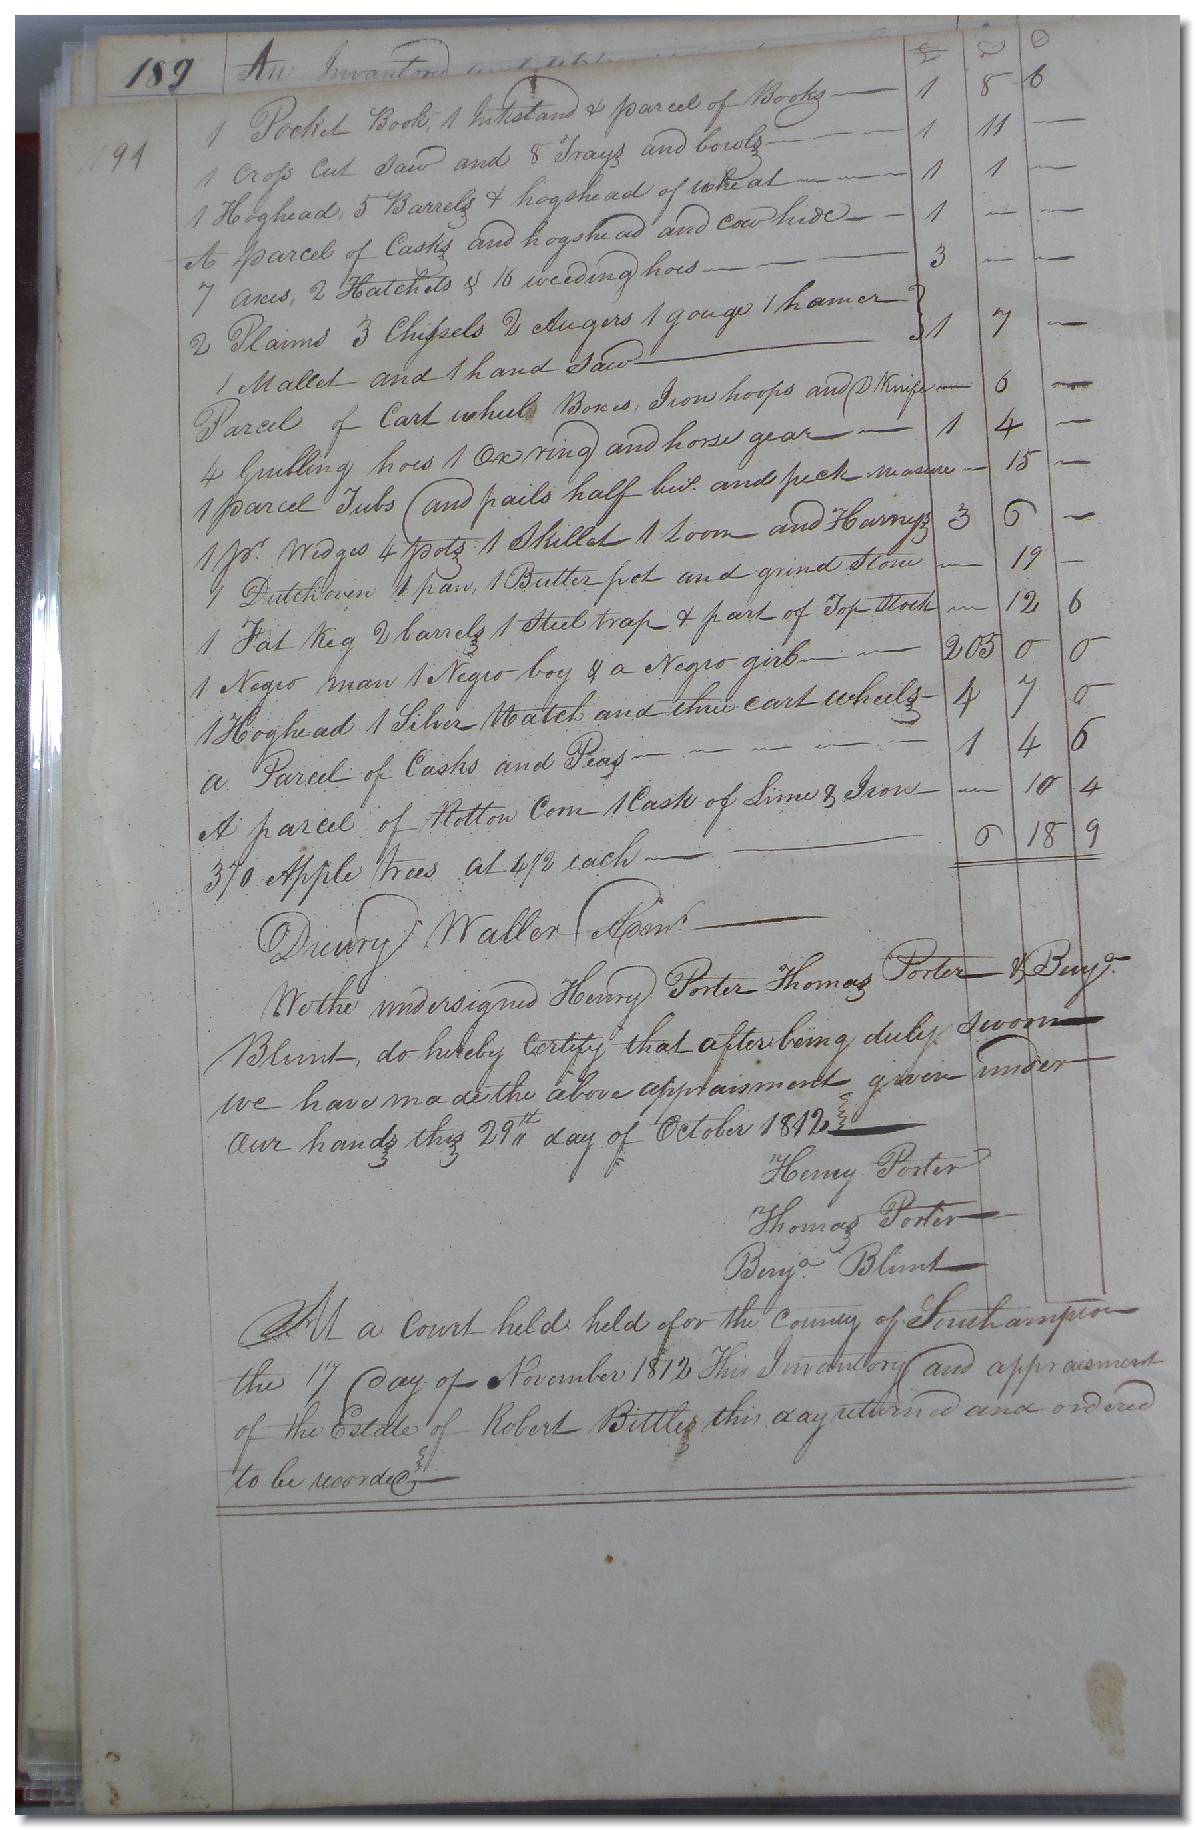 189 An Inventory
191
£ S D
1 Pocket Book, 1 Inkstand & parcel of Books — 1 8 6
1 Cross Cut Saw and 8 Trays and bowls — 1 11 —
1 Hoghead, 5 Barrels & hogshead of wheat — 1 1 —
A parcel of Casks and hogshead and cow hide — 1 — —
7 axes, 2 Hatchets & 16 weeding hoes — 3 — —
2 Plains 3 Chissels 2 Augers 1 gouge 1 hamer }
1 Mallet and 1 hand Saw — } 1 7 —
Parcel of Cart wheel Boxes, Iron hoops and D Knife — 6 —
4 Grubbing hoes 1 Ox ring and horse gear — 1 4 —
1 parcel Tubs and pails half bus. and peck measure — 15 —
1 pr. Wedges 4 pots 1 Skillet 1 Loom and Harness 3 6 —
1 Dutchoven 1 pan, 1 Butter pot and grind Stone — 19 —
1 Fat Keg 2 barrels 1 Steel trap & part of Top Stock — 12 6
1 Negro man 1 Negro boy & a Negro girl — 205 0 0
1 Hoghead 1 Silver Watch and three cart wheels — 4 7 0
a Parcel of Casks and Peas — 1 4 6
A parcel of Rotton Corn 1 Cask of Lime & Iron — 10 4
370 Apple trees at 4½ each — 6 18 9
Drewry Waller Admr. —
We the undersigned Henry Porter Thomas Porter & Benja.
Blunt, do hereby Certify that after being duly sworn
we have made the above appraisment given under
our hands this 29th day of October 1812 —
Henry Porter
Thomas Porter —
Benja. Blunt —
At a Court held held for the County of Southampton
the 17 day of November 1812 This Inventory and appraisment
of the Estate of Robert Bittles this day returned and ordered
to be recorded —